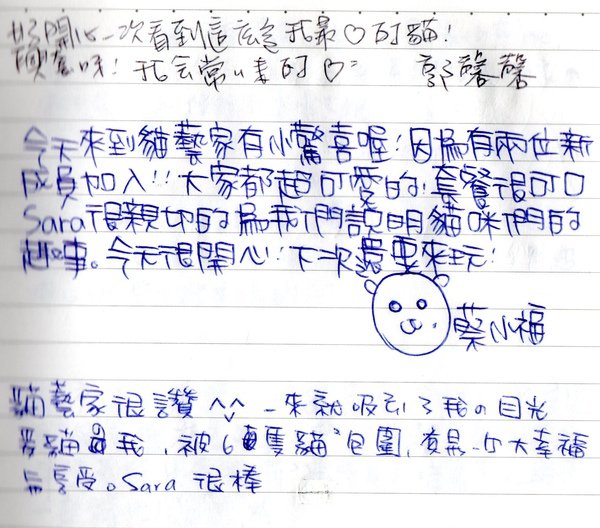 好開心一次看到這麼多我最♡的貓!
貓咪!我会常來的♡ 郭馨馨
今天來到貓藝家有小驚喜喔!因為有兩位新
成員加入!!大家都超可愛的!套餐很可口
Sara很親切的為我們說明貓咪們的
趣事。今天很開心!下次還要來玩!
蔡小福
貓藝家很讚^^ 一來就吸引了我の目光
貓 我,被6隻貓包圍,真是一大幸福
享受。Sara 很棒